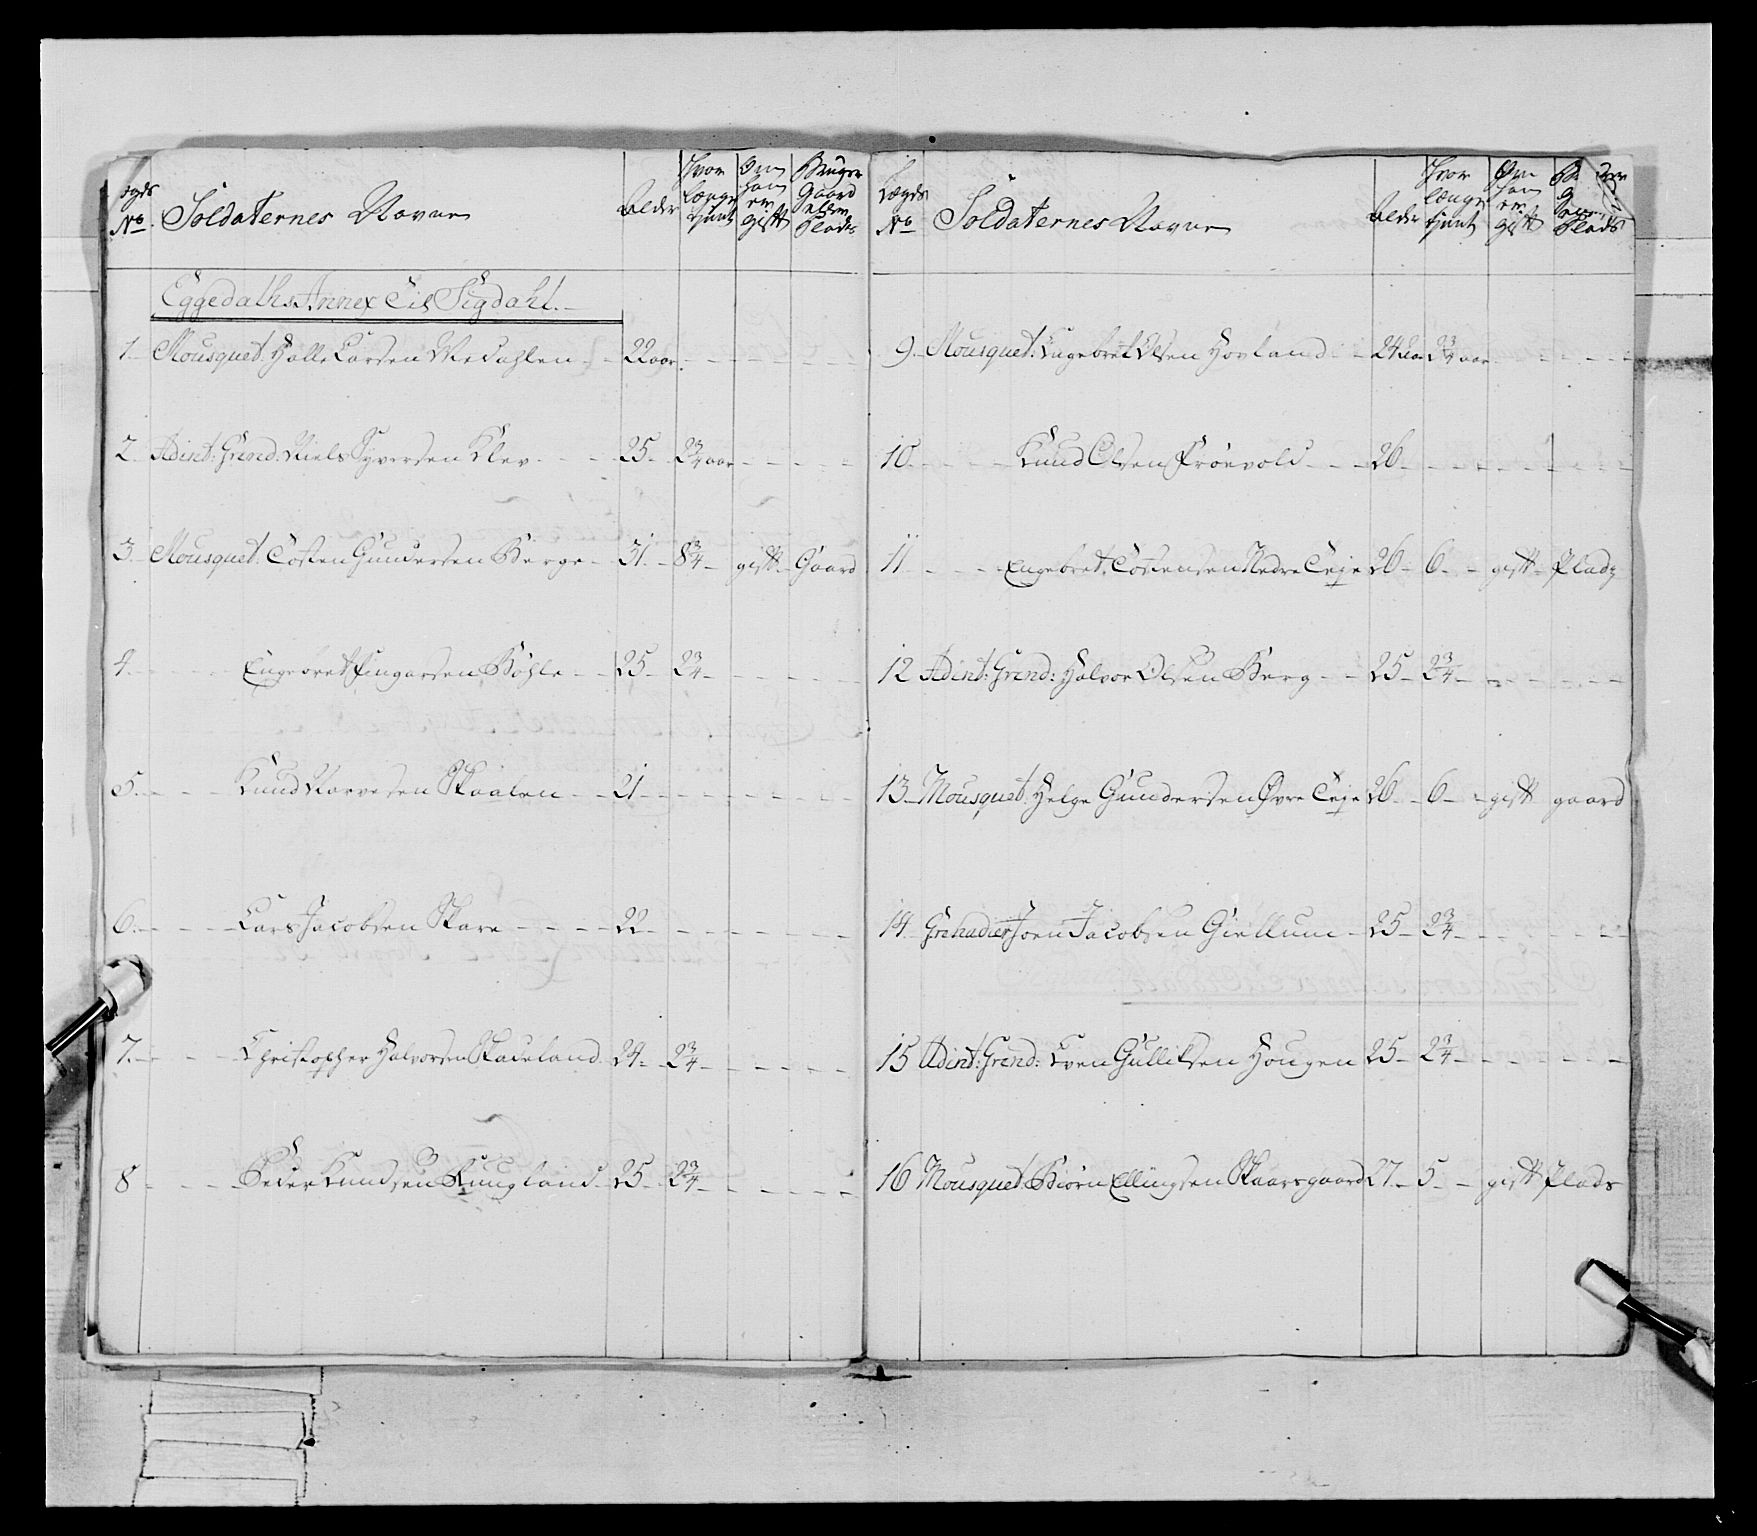 Lægds No. Soldaternes Navne Alder Hvor længe tjent Om han er gift Bruger Gaard eller Plads
Eggedahls Annex Til Sigdahl.
1 Mousquet: Halle Larsen Medahlen 22 aar
2 Adint: Grend: Niels Syversen Klev 25 2¾ aar
3 Mousquet: Tosten Gundersen Berge 31 8¾ gift Gaard
4 Engebret Fingarsen Bøhle 25 2¾
5 Knud Narvesen Skaalen 21
6 Lars Jacobsen Skare 22
7 Christopher Halvorsen Skadeland 24 2¾
8 Peder Knudsen Kuugland 25 2¾
Lægds No. Soldaternes Navne Alder Hvor længe tjent Om han er gift Plads
9 Mousquet: Engebret Olsen Hovland 24 aar 2¾ aar
10 Knud Olsen Frøvold 26
11 Engebret Tostensen Nedre Teje 26 6 gift Plads
12 Adint: Grend: Halvor Olsen Berg 25 2¾
13 Mousquet: Helge Gundersen Øvre Teje 26 6 gift gaard
14 Grenadier Joen Jacobsen Giellum 25 2¾
15 Adint: Grend: Even Gulliksen Hougen 25 2¾
16 Mousquet: Biørn Ellingsen Skaarsgaard 27 5 gift Plads